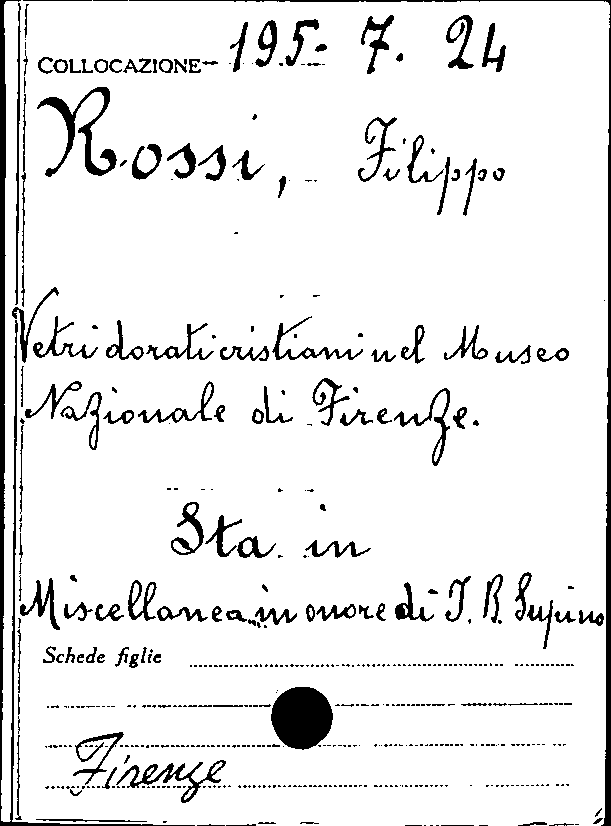 COLLOCAZIONE - 195 - 7. 24
Rossi, - Filippo
Vetri dorati cristiani nel Museo
Nazionale di Firenze.
Sta in
Miscellanea in onore di I. B. Supino
Schede figlie
Firenze